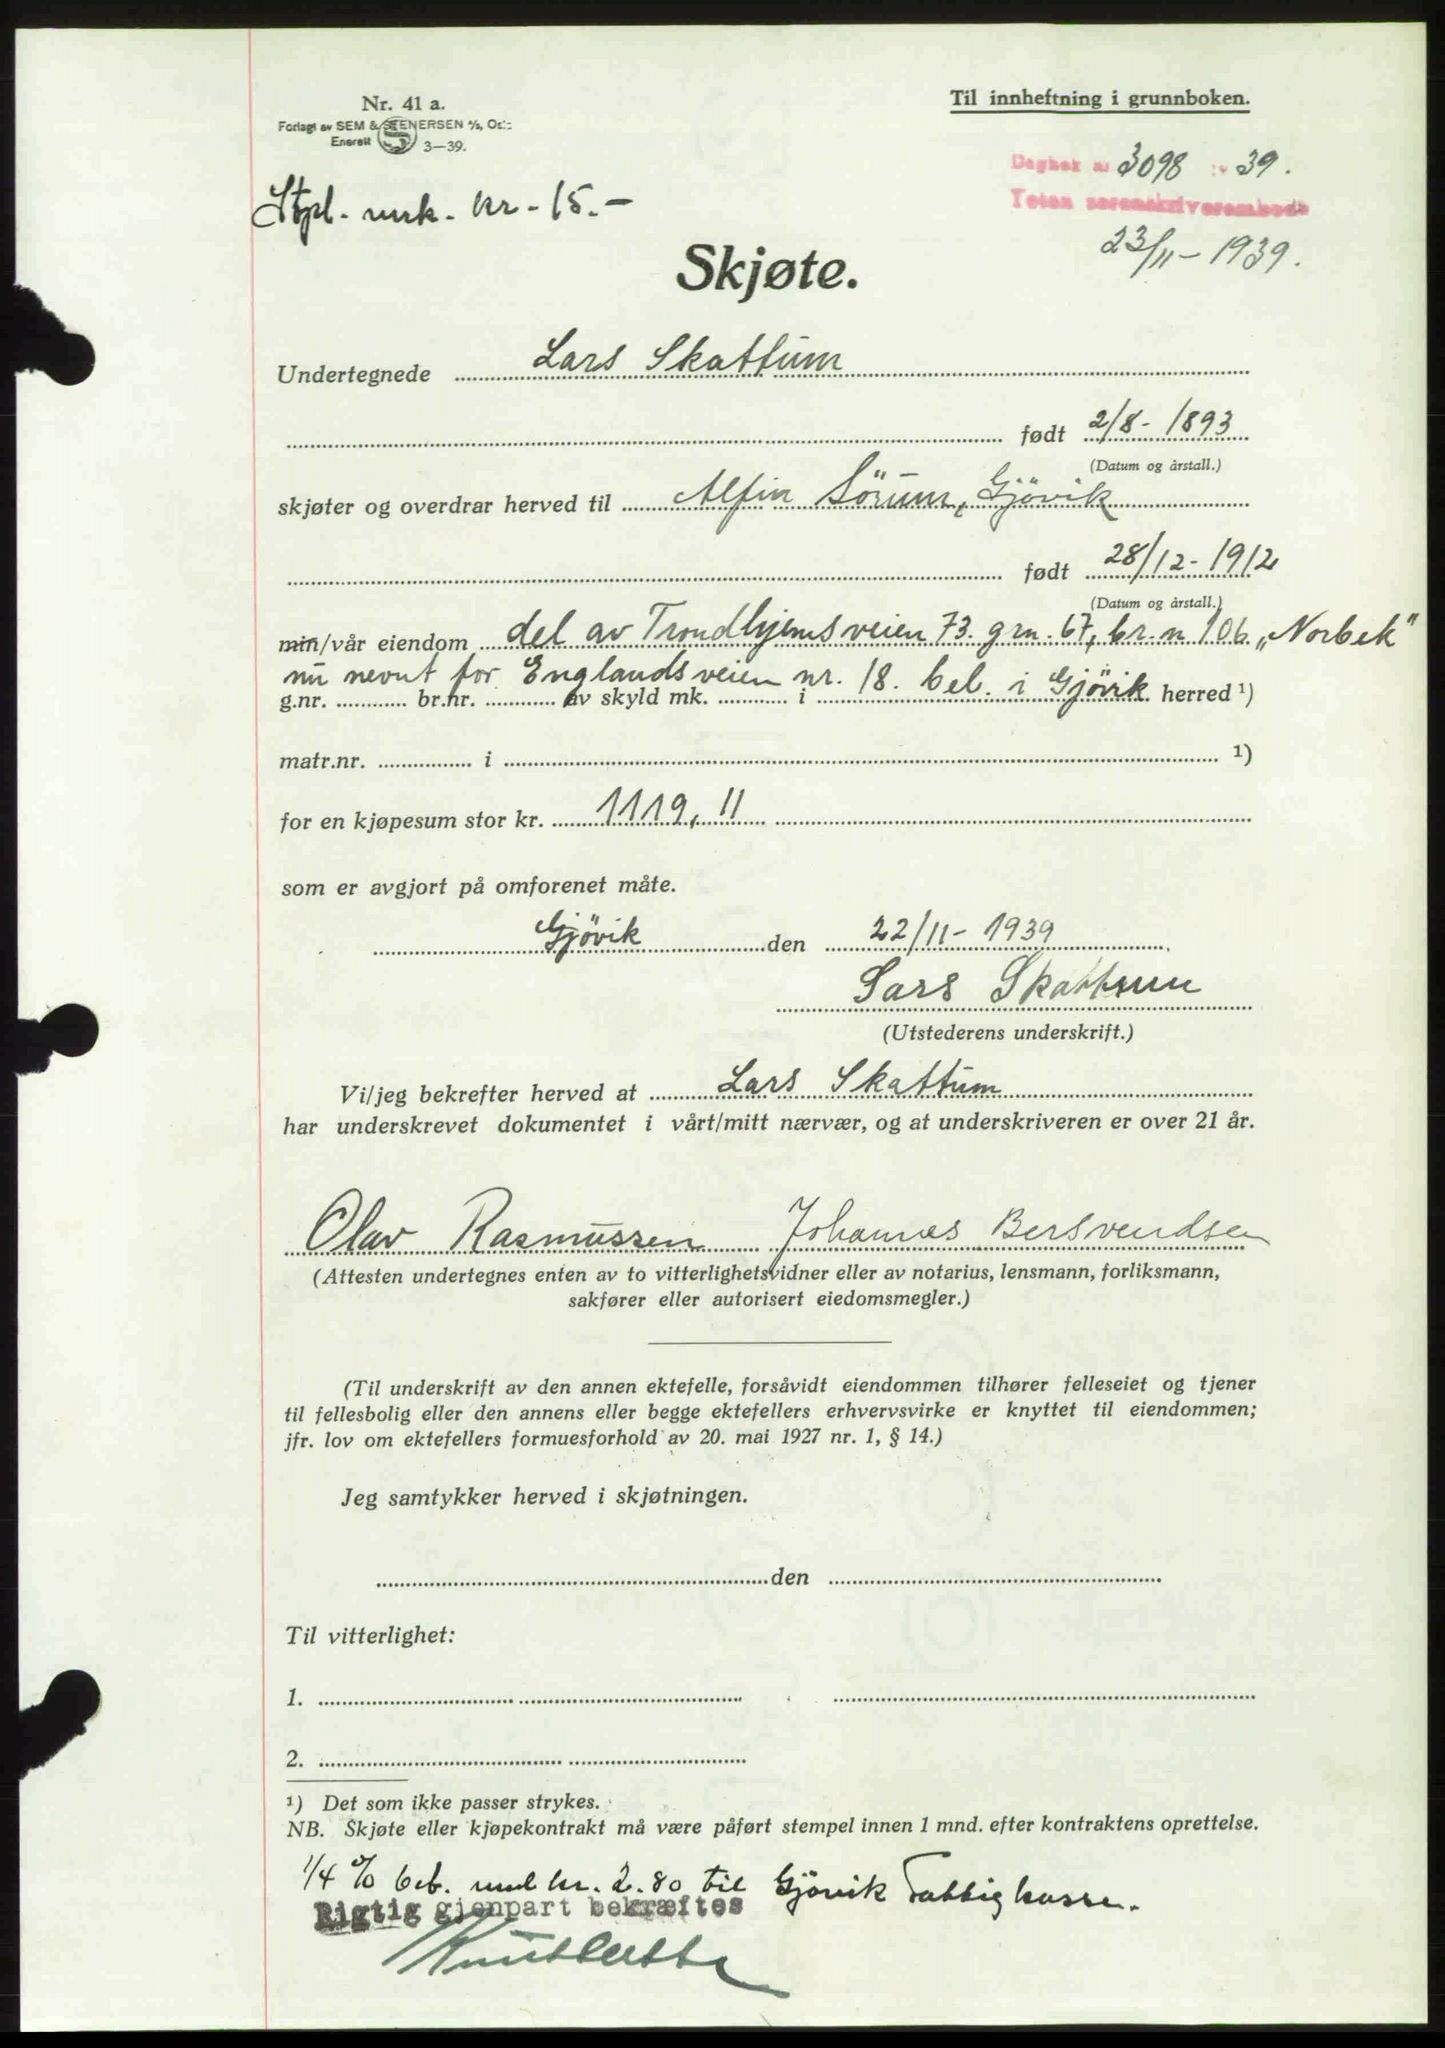 Nr. 41 a.
Forlagt av SEM & STENERSEN A/S, Oslo
Enerett 3—39.
Til innheftning i grunnboken.
Dagbok nr 3098 19 39.
Toten sorenskriverembede
23/11 - 1939.
Stpl. mrk. kr. 15.-
Skjøte.
Undertegnede Lars Skattum
født 2/8 - 1893
(Datum og årstall.)
skjøter og overdrar herved til Alfin Sörum, Gjövik
født 28/12 - 1912
(Datum og årstall.)
min/vår eiendom del av Trondhjemsveien 73. grn. 67, br. n 106 „Norbek"
nu nevnt for Englandsveien nr. 18. bel. i Gjövik
g.nr. br.nr. av skyld mk. i herred ¹)
matr.nr. i ¹)
for en kjøpesum stor kr. 1119,11
som er avgjort på omforenet måte.
Gjövik den 22/11 - 1939
Lars Skattum
(Utstederens underskrift.)
Vi/jeg bekrefter herved at Lars Skattum
har underskrevet dokumentet i vårt/mitt nærvær, og at underskriveren er over 21 år.
Olav Rasmussen Johannes Bersvendsen
(Attesten undertegnes enten av to vitterlighetsvidner eller av notarius, lensmann, forliksmann,
sakfører eller autorisert eiedomsmegler.)
(Til underskrift av den annen ektefelle, forsåvidt eiendommen tilhører felleseiet og tjener
til fellesbolig eller den annens eller begge ektefellers erhvervsvirke er knyttet til eiendommen;
jfr. lov om ektefellers formuesforhold av 20. mai 1927 nr. 1, § 14.)
Jeg samtykker herved i skjøtningen.
den
Til vitterlighet:
1.
2.
¹) Det som ikke passer strykes.
NB. Skjøte eller kjøpekontrakt må være påført stempel innen 1 mnd. efter kontraktens oprettelse.
1/4 % beb. med kr. 2.80 til Gjövik Fattigkasse.
Rigtig gjenpart bekræftes